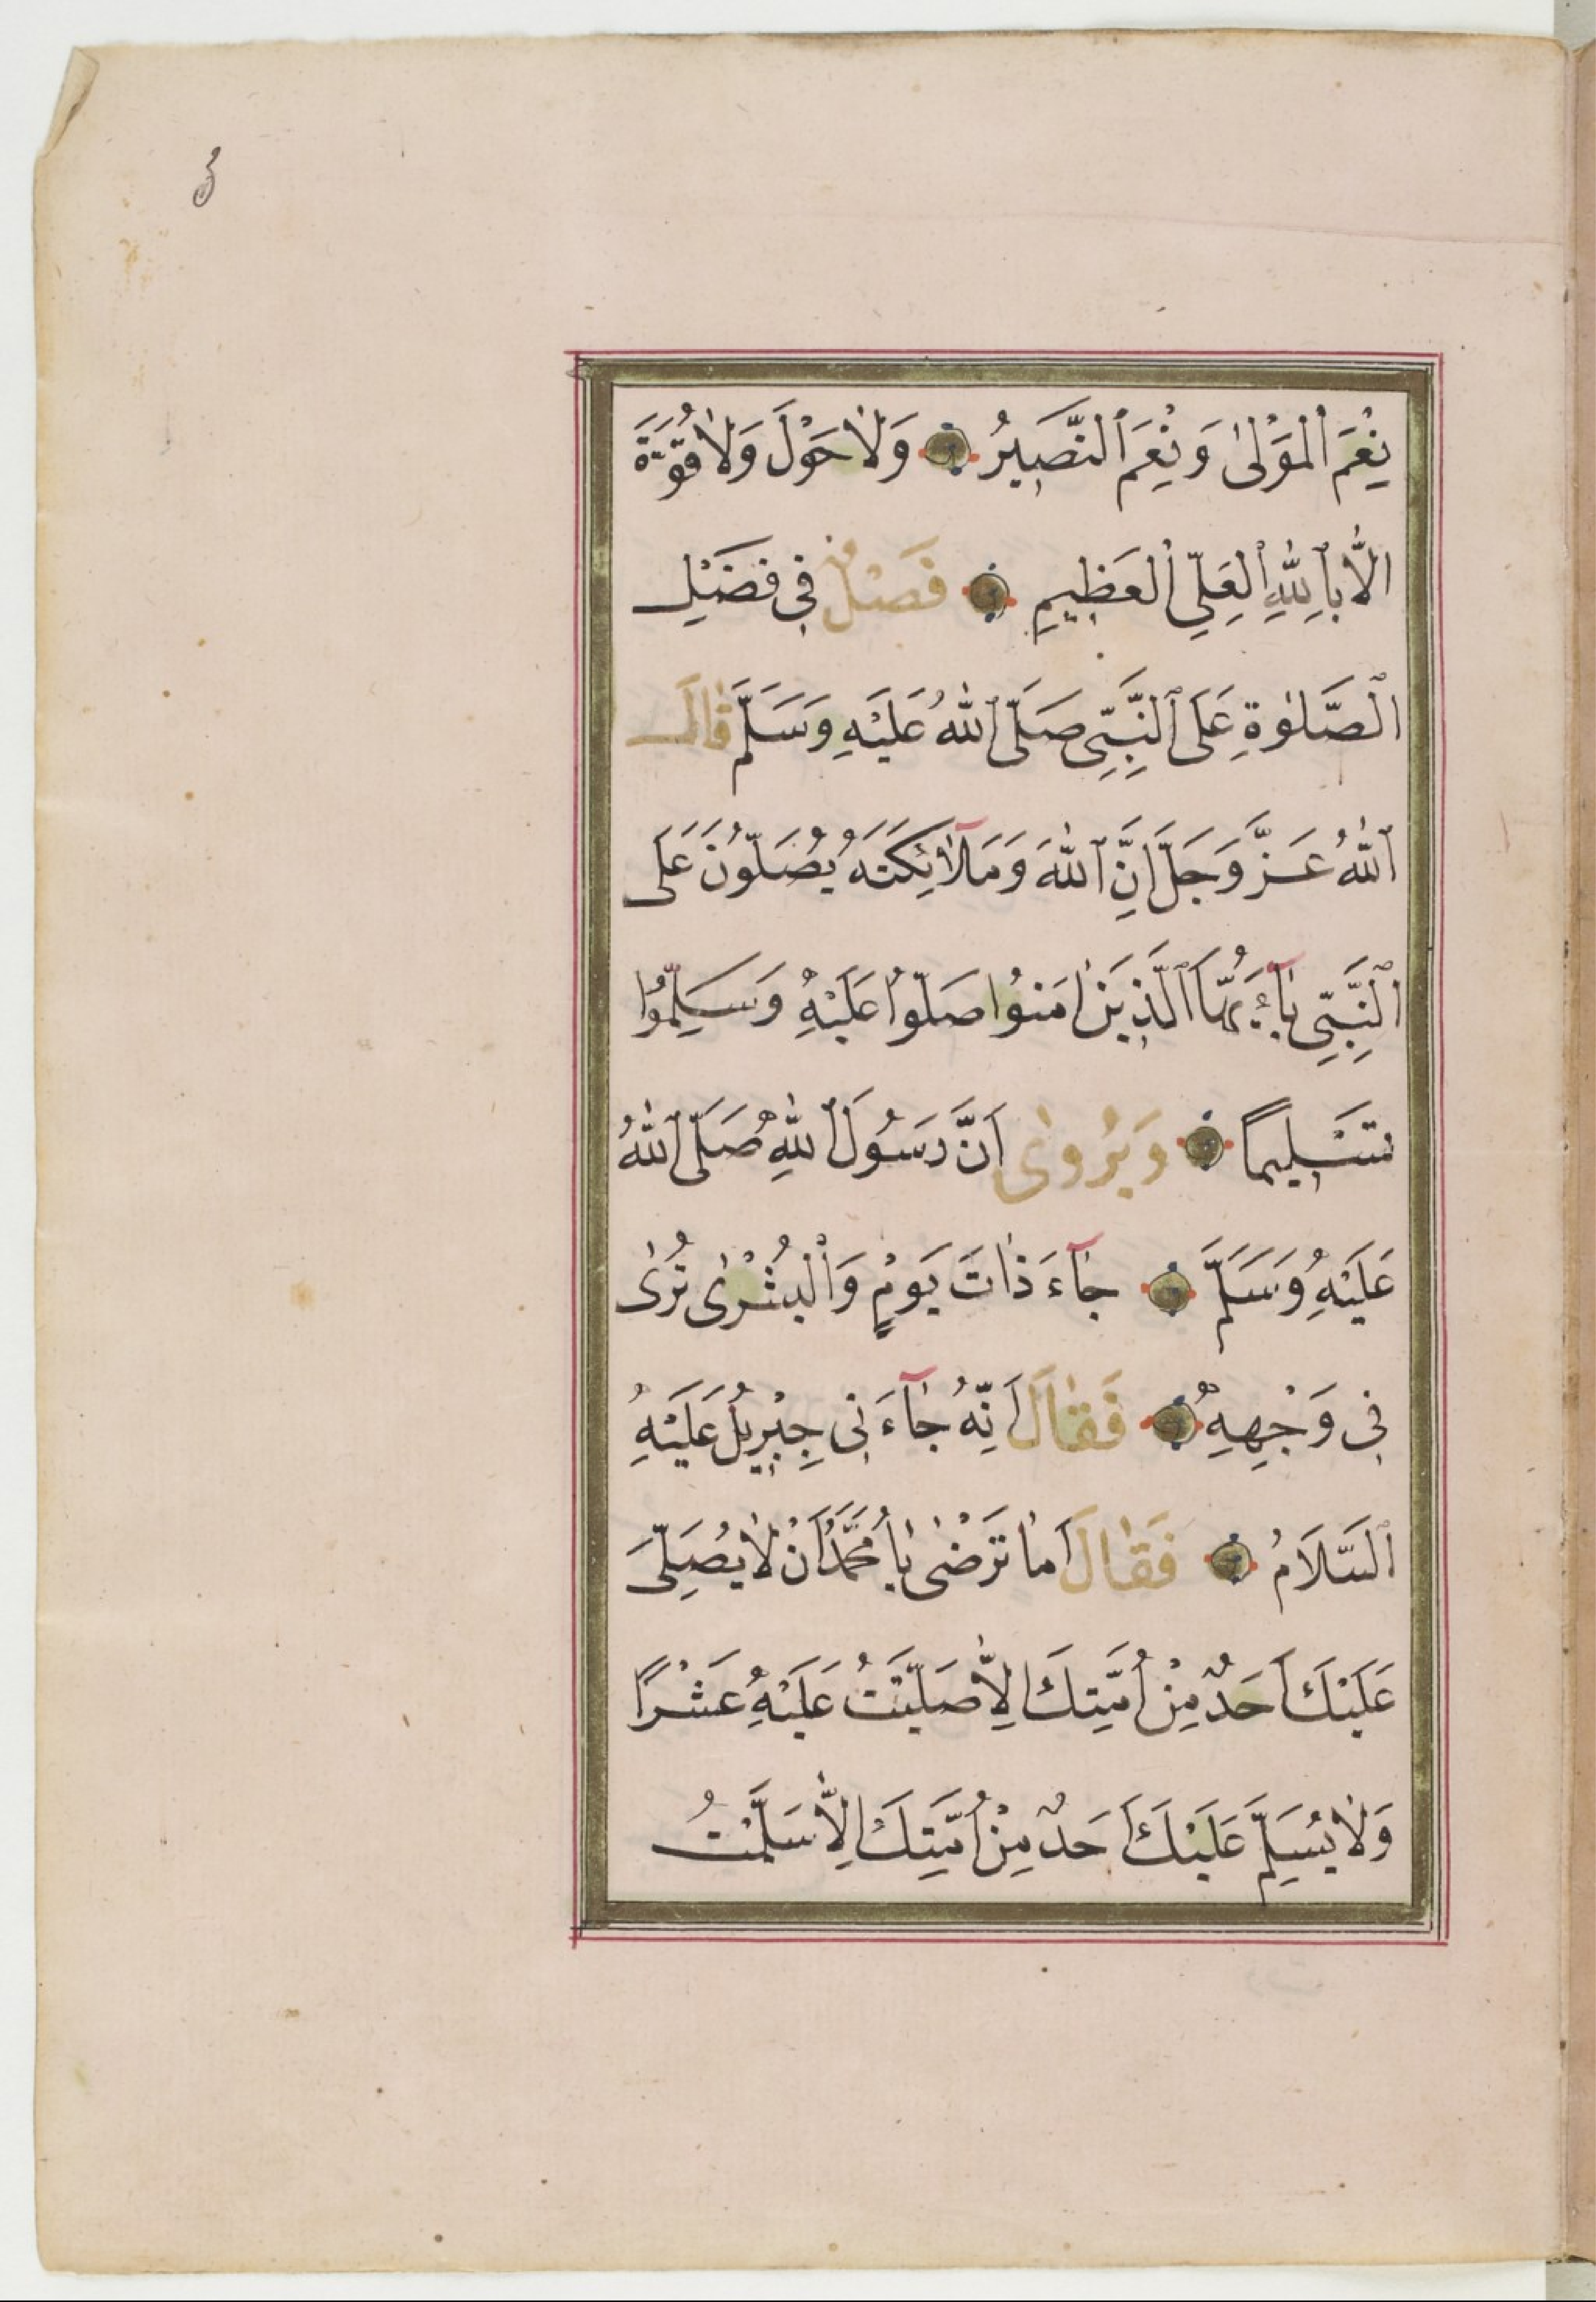 نِعْمَ ٱلْمَوْلٰى وَ نِعْمَ ٱلنَّصِيرُ وَلَا حَوْلَ وَلَا قُوَّةَ
اِلَّا بِاللّٰهِ ٱلْعَلِىِّ ٱلْعَظِيمِ فَصْلٌ فِى فَضْلِ
ٱلصَّلٰوةِ عَلَى ٱلنَّبِىِّ صَلَّى ٱللّٰهُ عَلَيْهِ وَسَلَّمَ قَالَ
ٱللّٰهُ عَزَّ وَجَلَّ اِنَّ ٱللّٰهَ وَمَلَآئِكَتَهُ يُصَلُّونَ عَلَى
ٱلنَّبِىِّ يَآءَيُّهَا ٱلَّذِينَ اٰمَنُوا صَلُّوا عَلَيْهِ وَسَلِّمُوا
تَسْلِيمًا وَيُرْوٰى اَنَّ رَسُولَ ٱللّٰهِ صَلَّى ٱللّٰهُ
عَلَيْهِ وَسَلَّمَ جَآءَ ذَاتَ يَوْمٍ وَٱلْبُشْرٰى تُرٰى
فِى وَجْهِهِ فَقَالَ اِنَّهُ جَآءَنِى جِبْرِيلُ عَلَيْهِ
ٱلسَّلَامُ فَقَالَ اَمَا تَرْضٰى يَا مُحَمَّدُ اَنْ لَا يُصَلِّىَ
عَلَيْكَ اَحَدٌ مِنْ اُمَّتِكَ اِلَّا صَلَّيْتُ عَلَيْهِ عَشْرًا
وَلَا يُسَلِّمَ عَلَيْكَ اَحَدٌ مِنْ اُمَّتِكَ اِلَّا سَلَّمْتُ